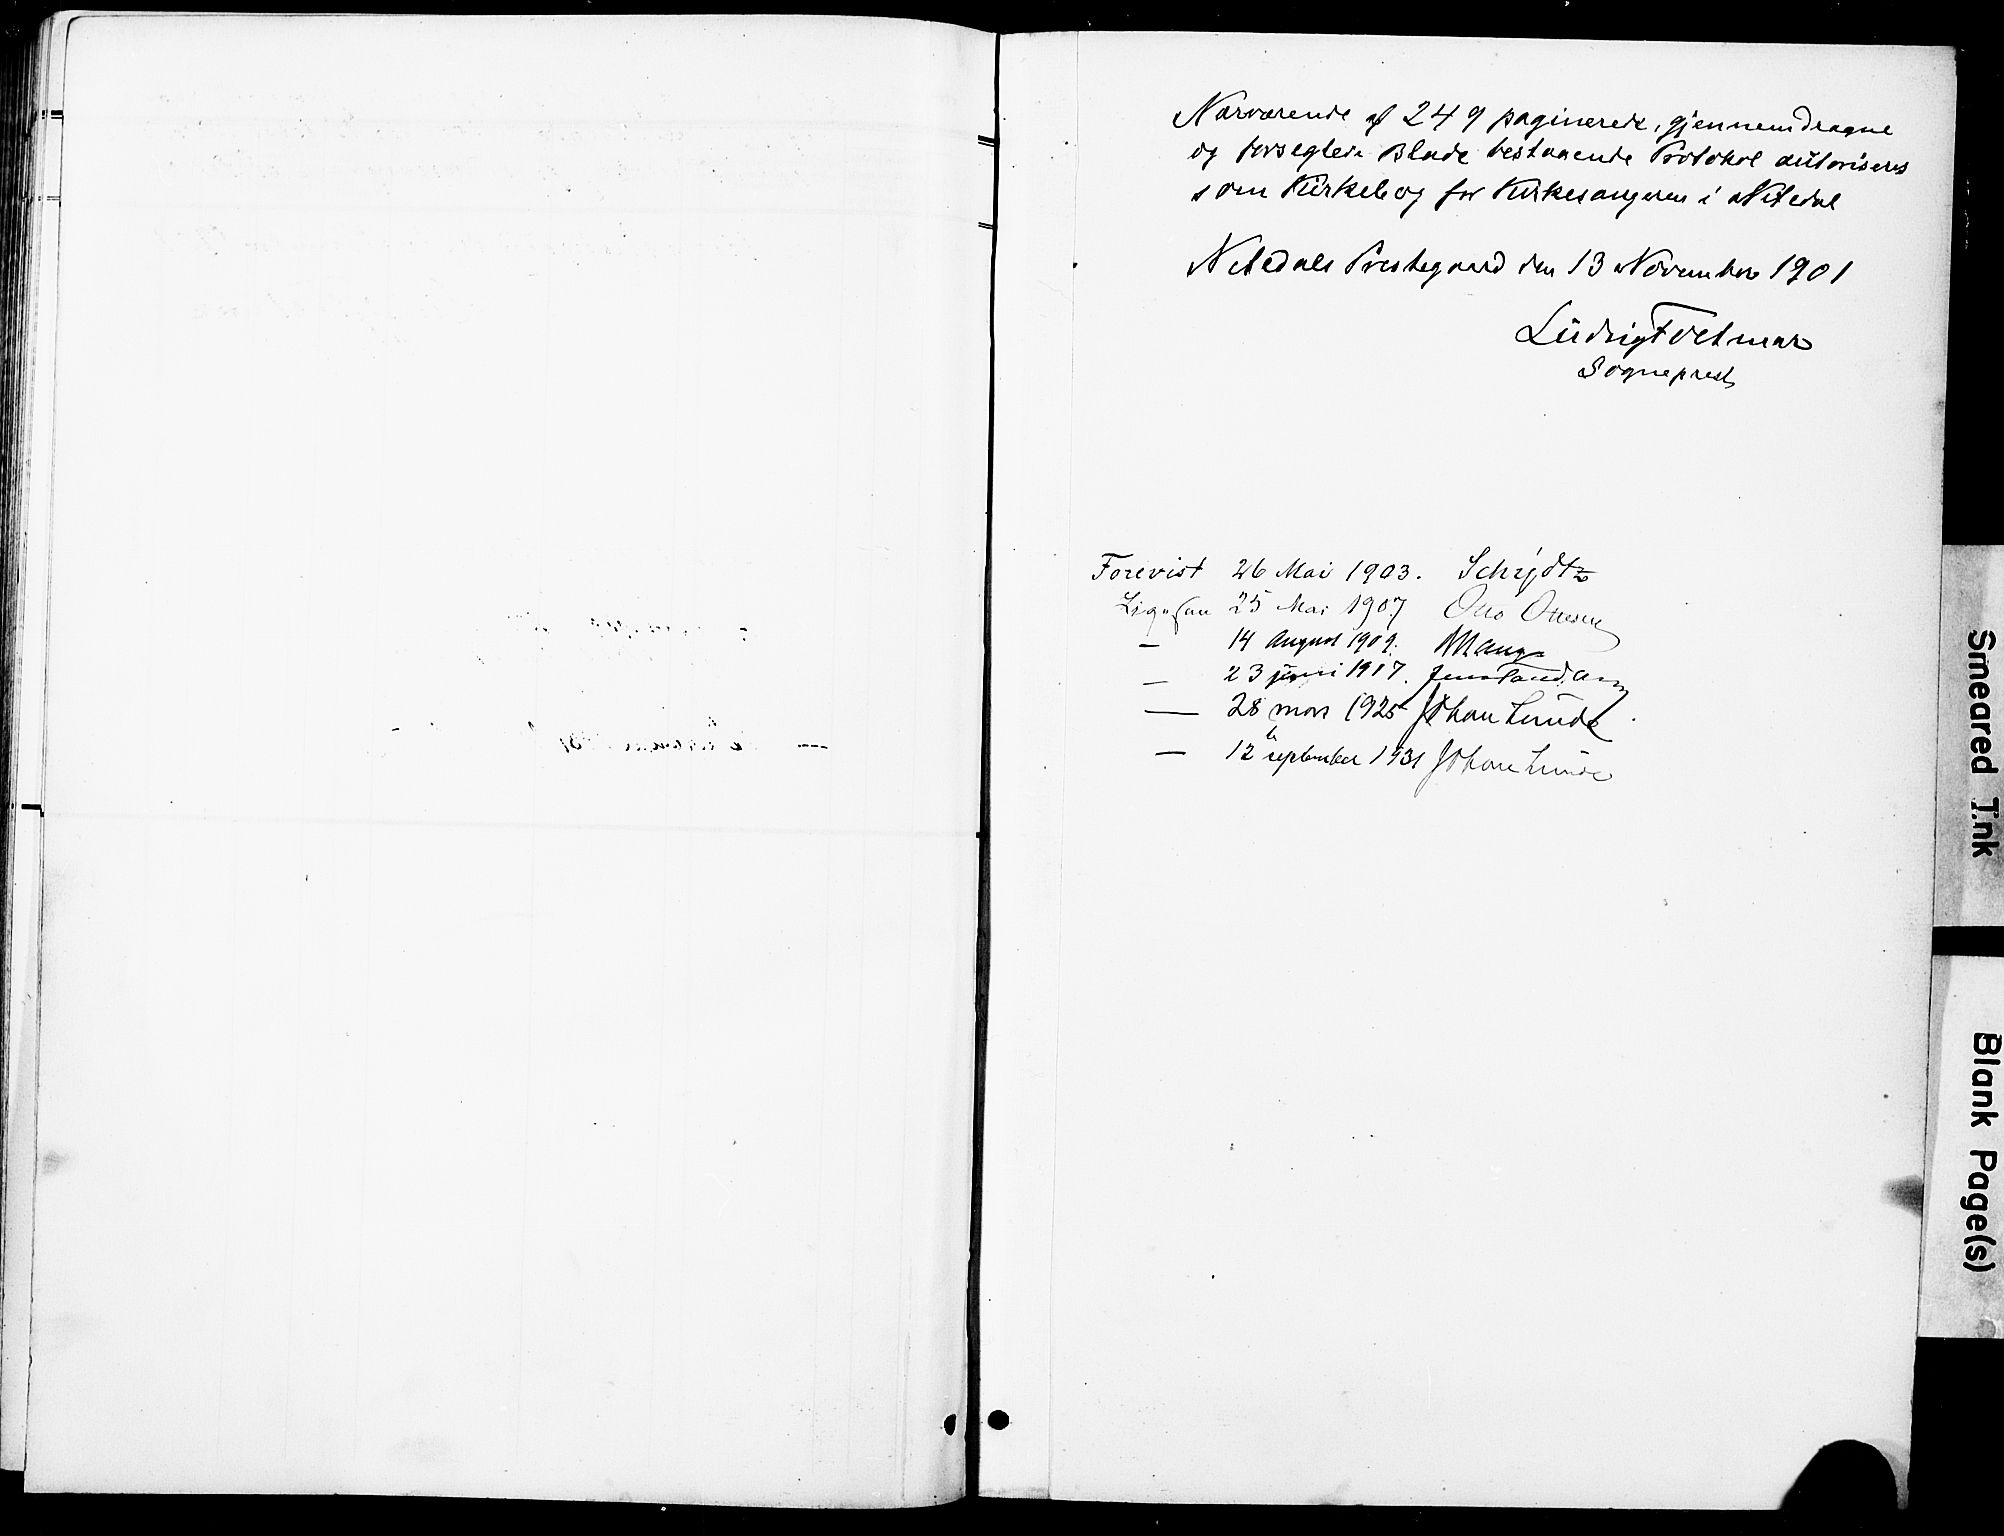 Nærværende af 249 paginerede, gjennemdragne
og forseglede Blade bestaaende Protokol autoriseres
som Kirkebog for Kirkesangeren i Nitedal
Nitedals Prestegaard den 13 November 1901
Ludvig Foetmar
Sogneprest
Forevist 26 Mai 1903. Schrÿdtz
Ligesaa 25 Mai 1907 Otto Ottesen
— 14 August 1909.
— 23 juni 1917. Jens Tandberg
— 28 mars 1925 Johan Lunde
— 12 september 1931 Johan Lunde
Smeared Ink
Blank Page(s)